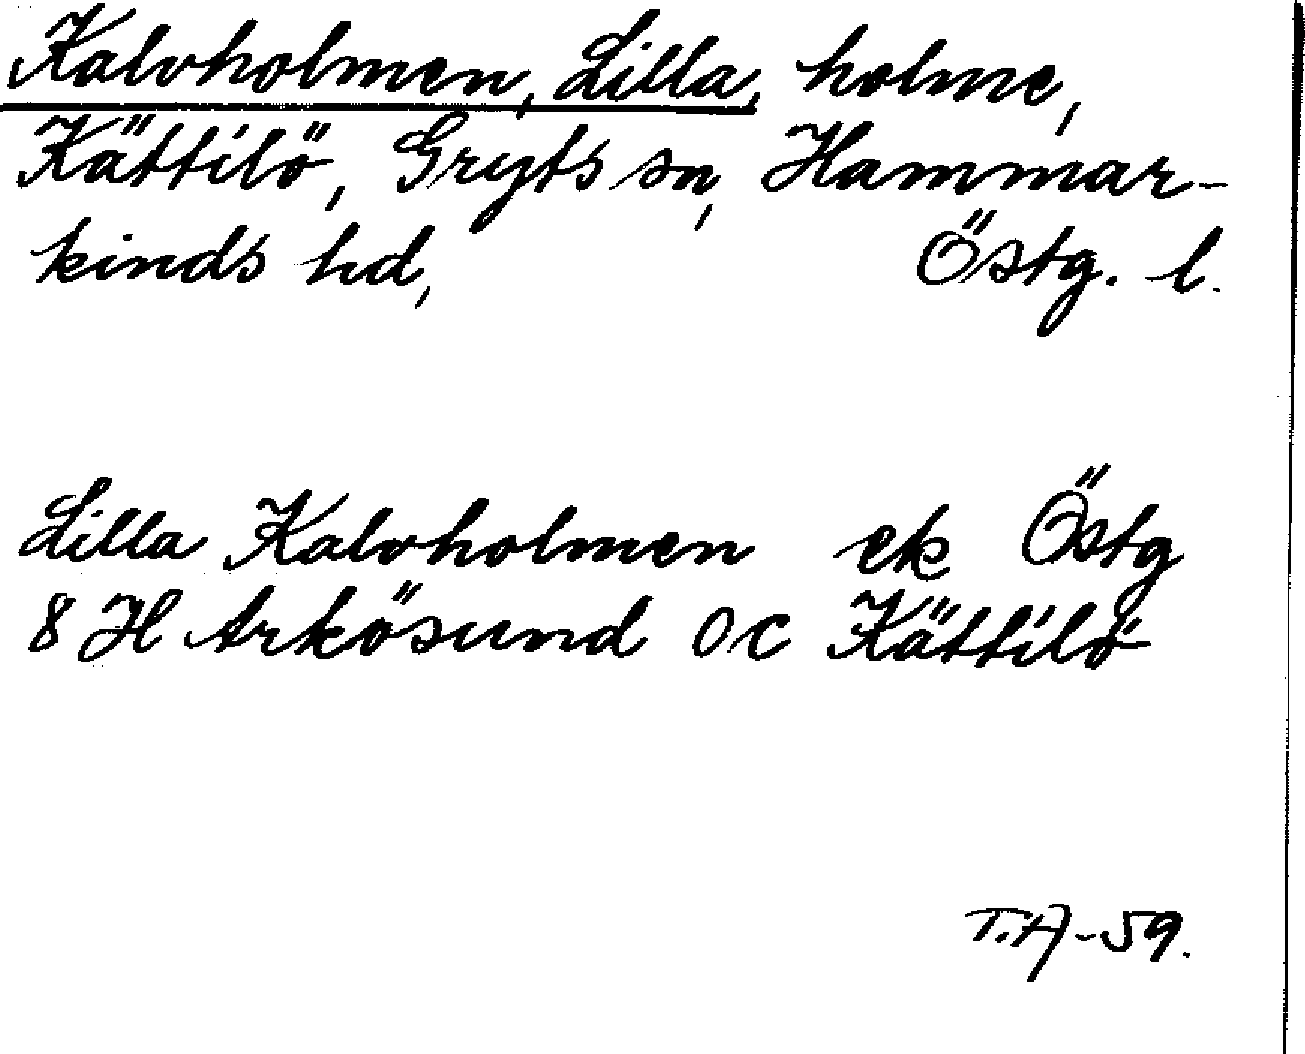 Kalvholmen, Lilla, holme,
Kättilö, Gryts sn, Hammar-
kinds hd, Östg. l.
Lilla Kalvholmen ek Östg
8 H Arkösund OC Kättilö
T.A-59.